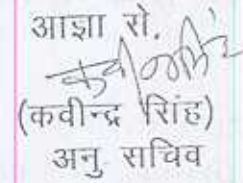 आज्ञा से.
(कवीन्द्र सिंह)
अनु सचिव